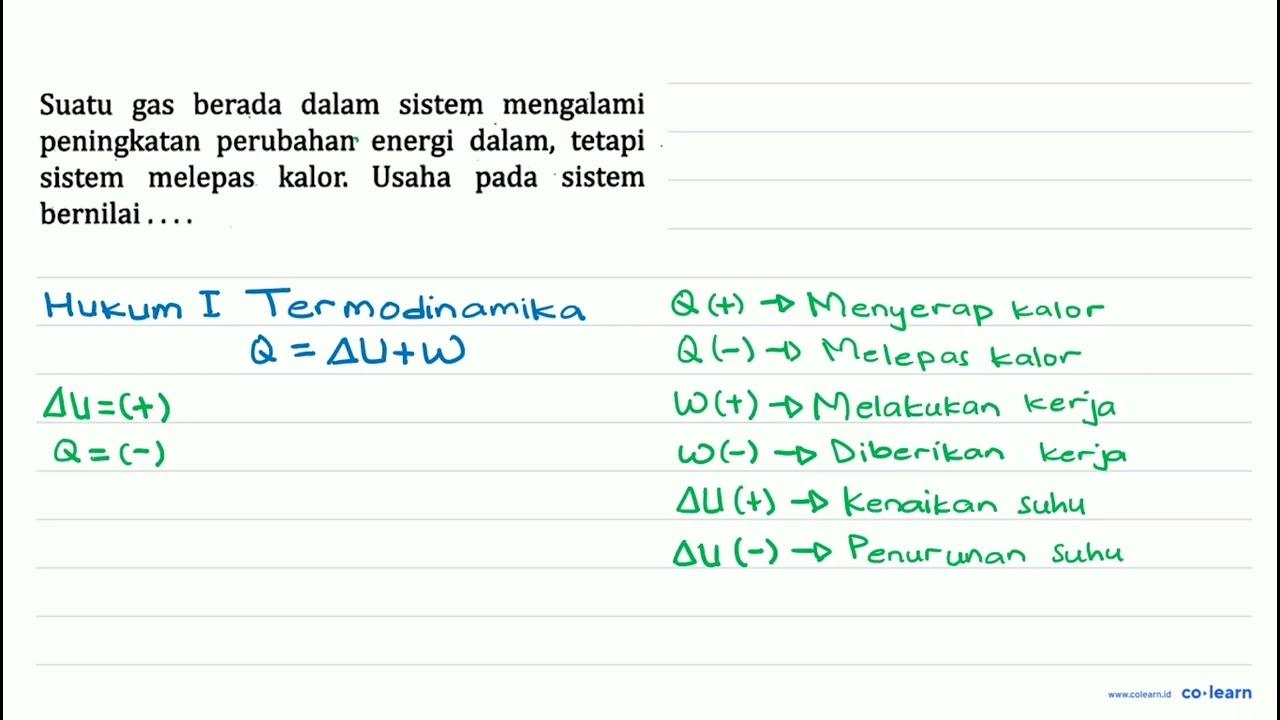 Suatu gas berada dalam sistem mengalami
peningkatan perubahan energi dalam, tetapi
sistem melepas kalor. Usaha pada sistem
bernilai . . . .
Hukum I Termodinamika
Q = ΔU + W
ΔU = (+)
Q = (-)
Q (+) → Menyerap kalor
Q (-) → Melepas kalor
W (+) → Melakukan kerja
W (-) → Diberikan kerja
ΔU (+) → Kenaikan suhu
ΔU (-) → Penurunan suhu
www.colearn.id co·learn